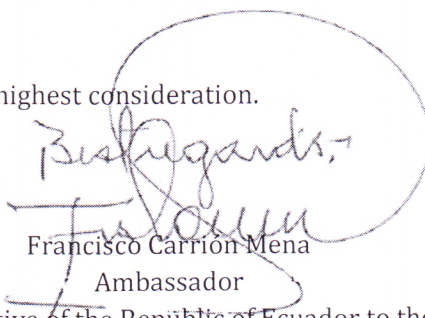 highest consideration.
Best regards.-
Francisco Carrión Mena
Ambassador
tive of the Republic of Ecuador to the